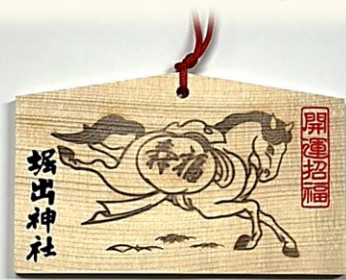 開運招福
寿福
堀出神社